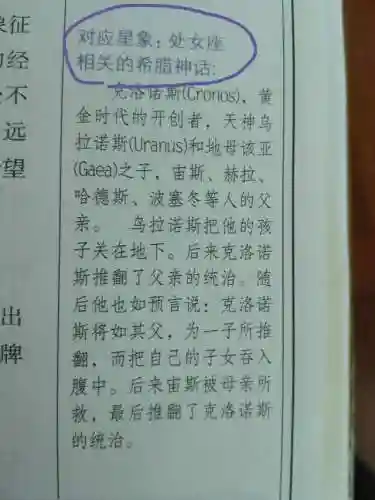 象征
的经
不
远
望
出
牌
对应星象：处女座
相关的希腊神话:
克洛诺斯(Cronos)，黄
金时代的开创者，天神乌
拉诺斯(Uranus)和地母该亚
(Gaea)之子，宙斯、赫拉、
哈德斯、波塞冬等人的父
亲。 乌拉诺斯把他的孩
子关在地下。后来克洛诺
斯推翻了父亲的统治。随
后他也如预言说：克洛诺
斯将如其父，为一子所推
翻，而把自己的子女吞入
腹中。后来宙斯被母亲所
救，最后推翻了克洛诺斯
的统治。